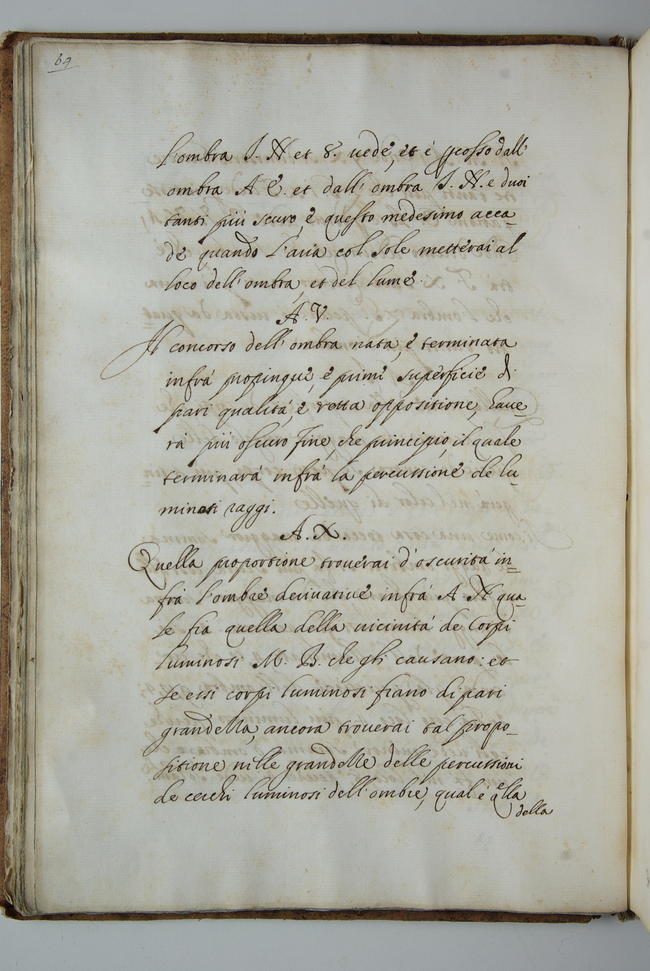 69
l'ombra I. H et 8. uede, et è pcosso dall'
ombra A E. et dall'ombra I. H. e duoi
tanti più scuro, e questo medesimo acca=
de quando l'aria col sole metterai al
loco dell'ombra et del lume.
A. V.
Il concorso dell'ombra nata, e terminata
infrà propinque, e prime superficie di
pari qualità, e retta oppositione, haue=
rà più oscuro fine, che principio, il quale
terminarà infrà la percussione de lu
minosi raggi.
A. X.
Quella proportione trouerai d'oscurità in=
frà l'ombre deriuatiue infrà A. H qua=
le fia quella della uicinità de Corpi
luminosi M. B. che gli causano: et
se essi corpi luminosi fiano di pari
grandezza, ancora trouerai tal propo=
sitione nille grandezze delle percussioni
de cerchi luminosi dell'ombre, qual è qlla
della